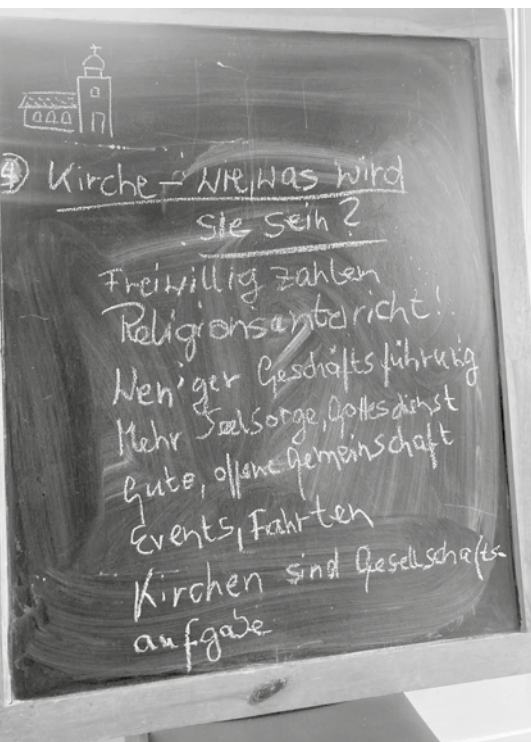 ④ Kirche – wie, was wird
sie sein?
Freiwillig zahlen
Religionsunterricht!
Weniger Geschäftsführung
Mehr Seelsorge, Gottesdienst
Gute, offene Gemeinschaft
Events, Fahrten
Kirchen sind Gesellschafts-
aufgabe